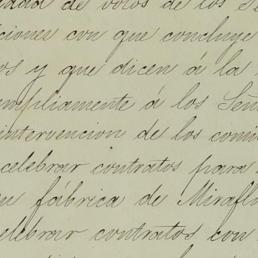 de votos de los
ciones con que concluye
os y que dicen á la
ampliamente á los Señ
intervencion de los comi
celebrar contratos para
en fábrica de Miraflo
celebrar contratos con